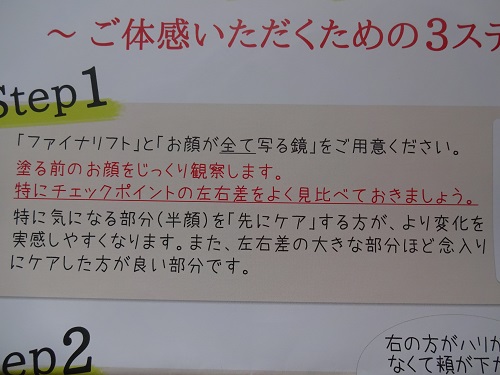 ～ご体感いただくための3ステ
Step1
「ファイナリフト」と「お顔が全て写る鏡」をご用意ください。
塗る前のお顔をじっくり観察します。
特にチェックポイントの左右差をよく見比べておきましょう。
特に気になる部分(半顔)を「先にケア」する方が、より変化を
実感しやすくなります。また、左右差の大きな部分ほど念入り
にケアした方が良い部分です。
ep2
右の方がハリが
なくて頬が下が